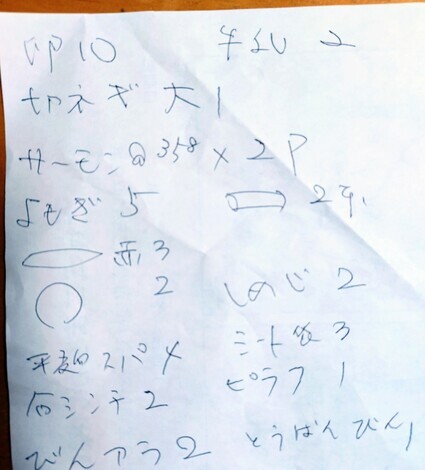 卵10 牛乳 2
切ネギ 大1
サーモン@358×2P
よもぎ 5
赤3
2 しめじ 2
ミート 3
スパ ピラフ 1
2 とうばんびん1
びん アラ2